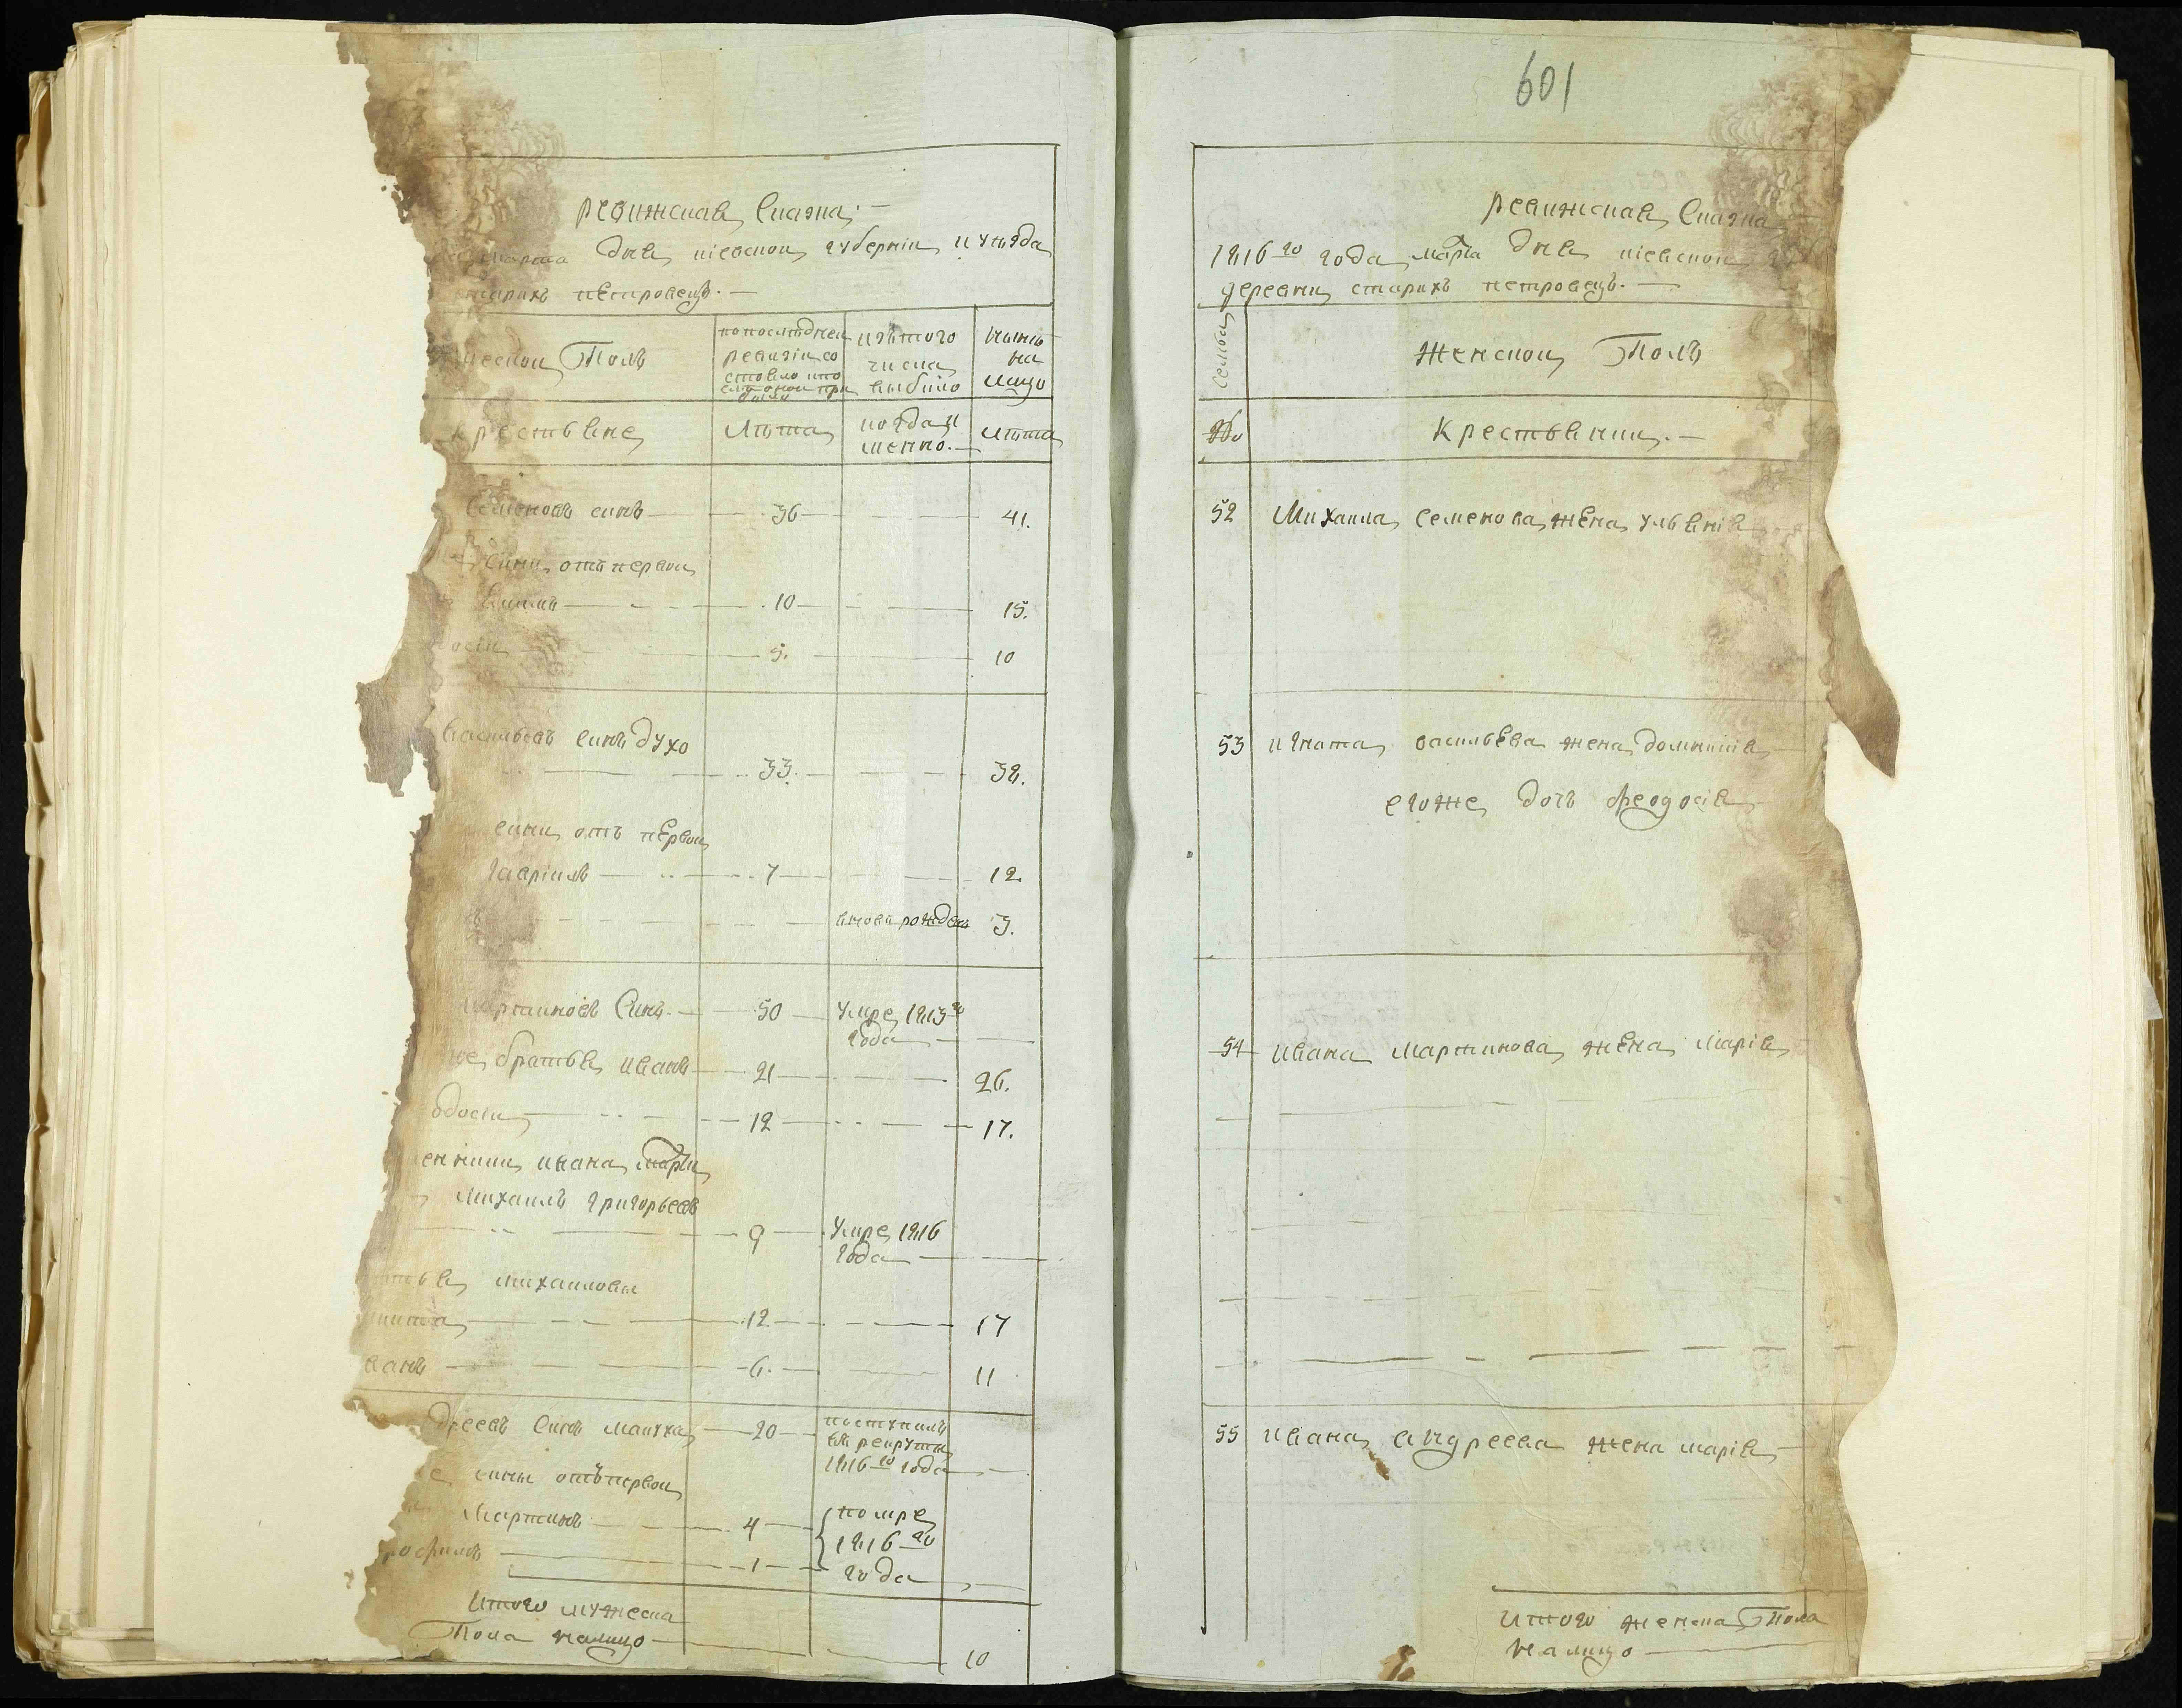 ревижская Сказка.
марта дня кіевской губерніи и уѣзда
старихъ петровецъ.
Полъ
по последней
ревизіи со
стояло
изътого
числа
выбыло
нынѣ
на
лицо
крестьяне
лѣта
когда и
менно.
лѣта
Семеновъ синъ 36 41.
сини отъ первой
10 15.
5. 10
васильевъ синъ духо
33. 38.
сини отъ первой
гавріилъ 7 12.
вновь рожденъ 3.
мартиновъ Синъ 50 Умре 1813го
года
братья иванъ 21 26.
одосіи 12 17.
ивана марти
михаилъ григорьевъ
9 Умре 1816
года
михаиловы
12 17
6. 11
дреевъ синъ мацуха 20 поступилъ
въ рекруты
1816го года
сины отъпервой
Мартинъ 4 помре
1816го
рофимъ 1 года
Итого мужеска
Пола налицо 10
601
ревижская Сказка
1816го года марта дня кіевской
деревни старихъ петровецъ.
Семьи
Женской Полъ
№
Крестьянки.
52 Михаила Семенова жена ульянія
53 игната васильева жена домникія
егоже дочь феодосія
54 ивана мартинова жена марія
55 ивана андреева жена марія
Итого женска Пола
налицо